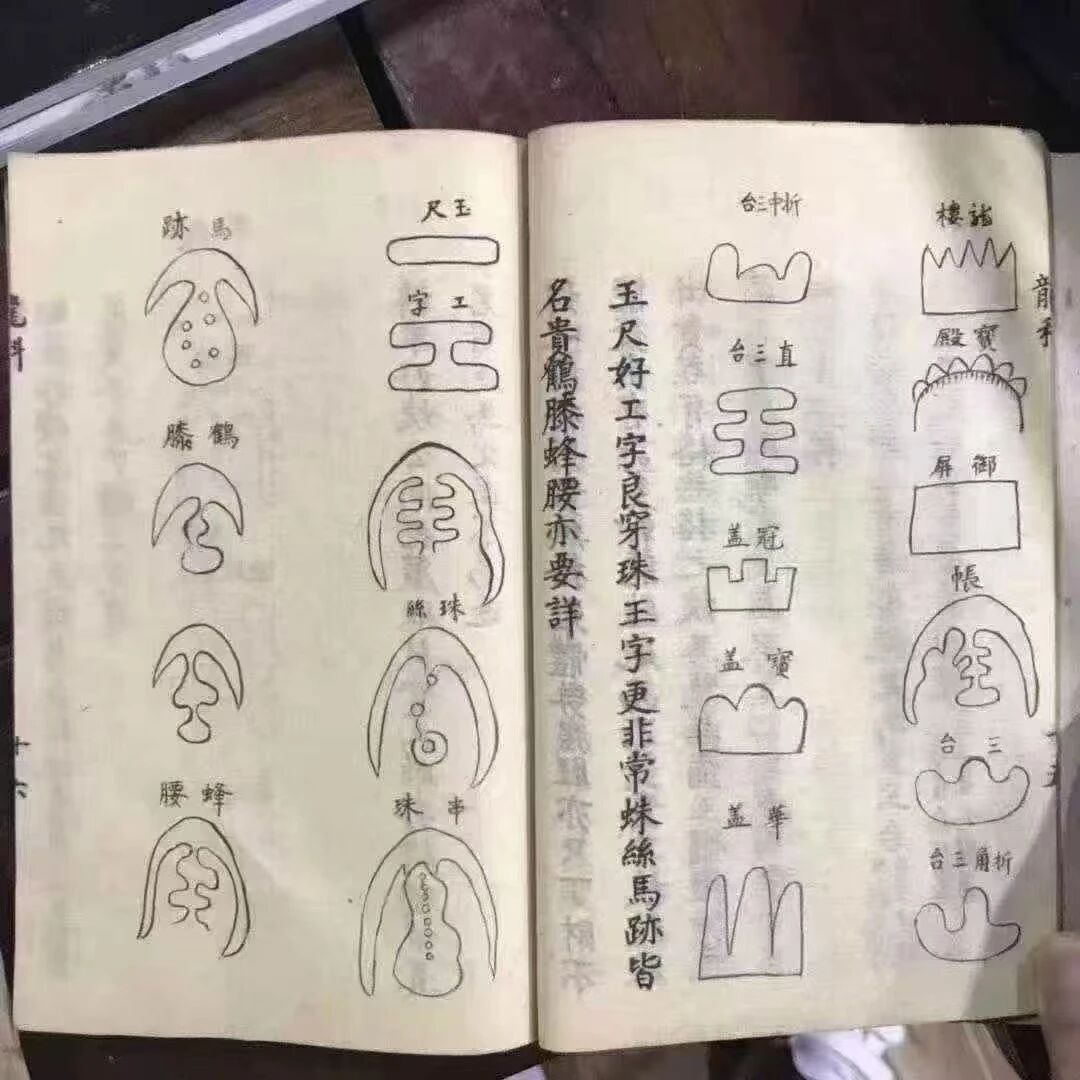 龍樓
寶殿
御屏
帳
三台
折角三台
折中三台
直三台
冠盖
寶盖
華盖
玉尺好工字良穿珠王字更非常蛛絲馬跡皆
名貴鶴膝蜂腰亦要詳
玉尺
工字
珠絲
串珠
馬跡
鶴膝
蜂腰
十六